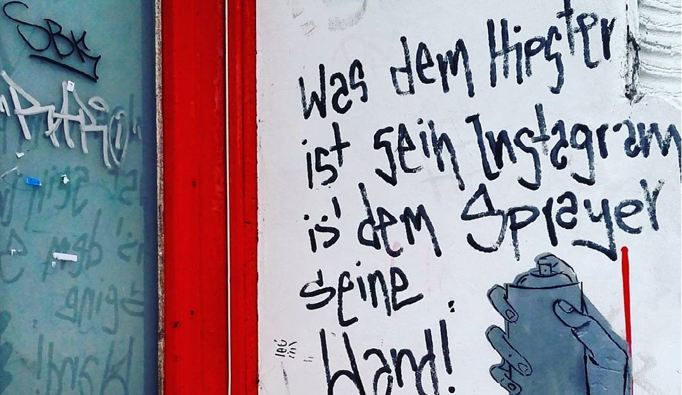 SBK
"RARi"
Was dem Hipster
ist sein Instagram
is' dem Sprayer
seine
Wand!